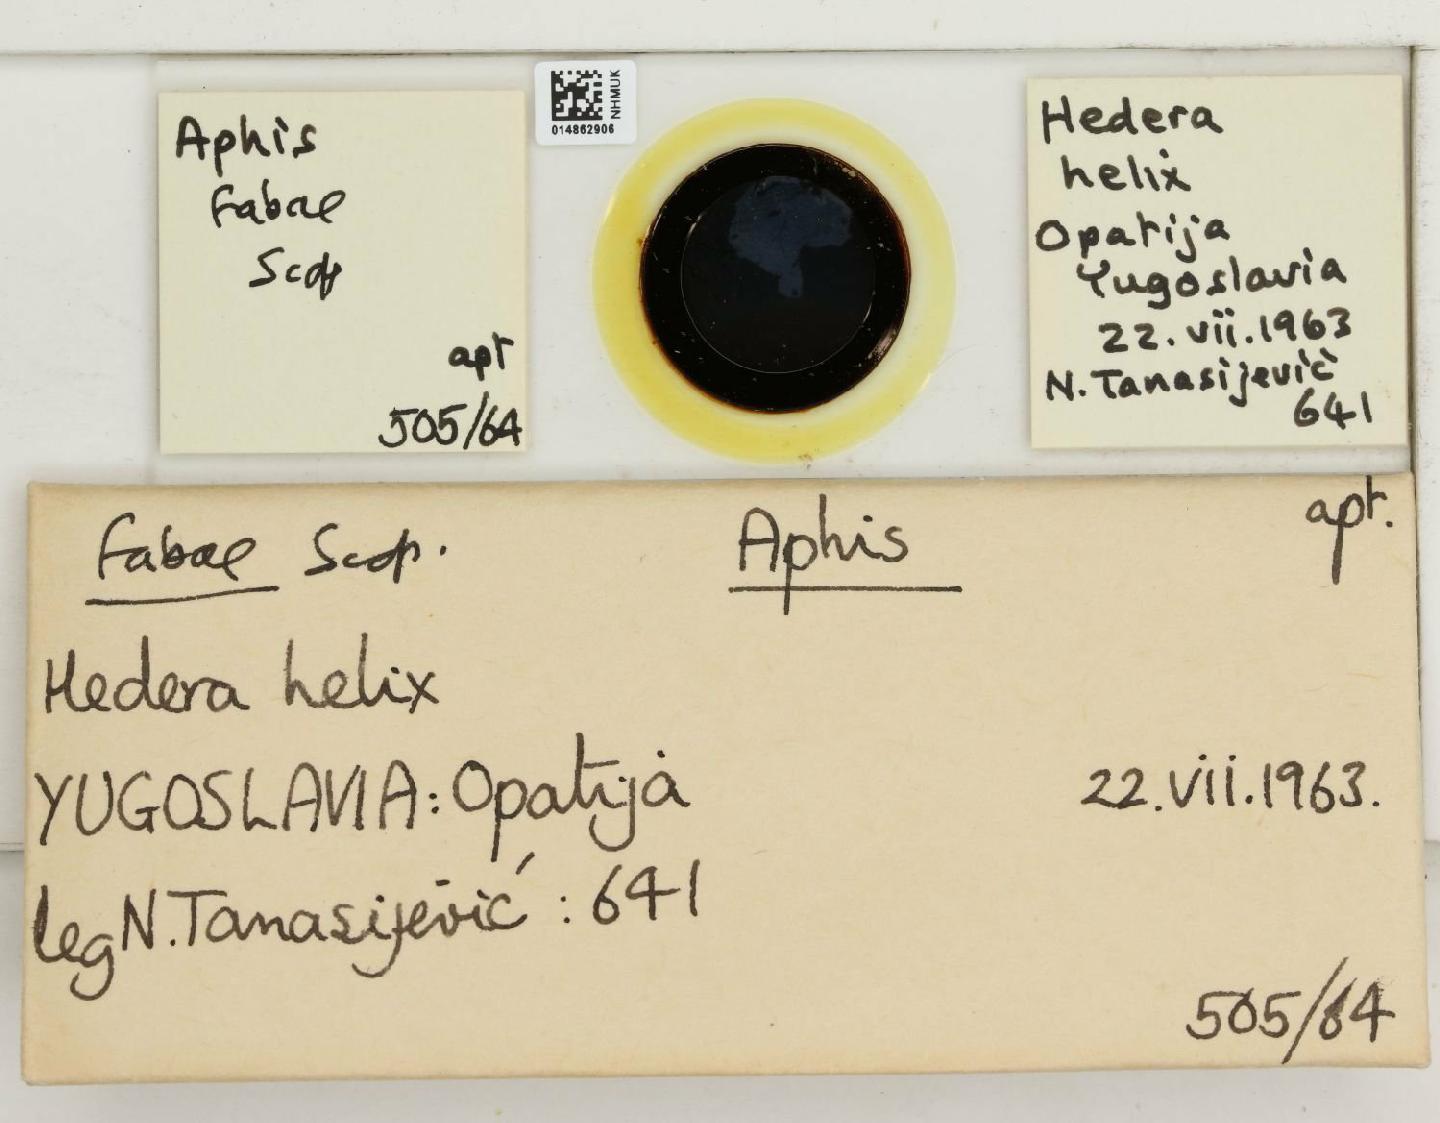 Aphis
fabae
Scop
apt
505/64
NHMUK
014862906
Hedera
helix
Opatija
Yugoslavia
22.vii.1963
N. Tanasijević
641
fabae Scop. Aphis apt.
Hedera helix
YUGOSLAVIA: Opatija 22.vii.1963.
leg N. Tanasijević : 641
505/64